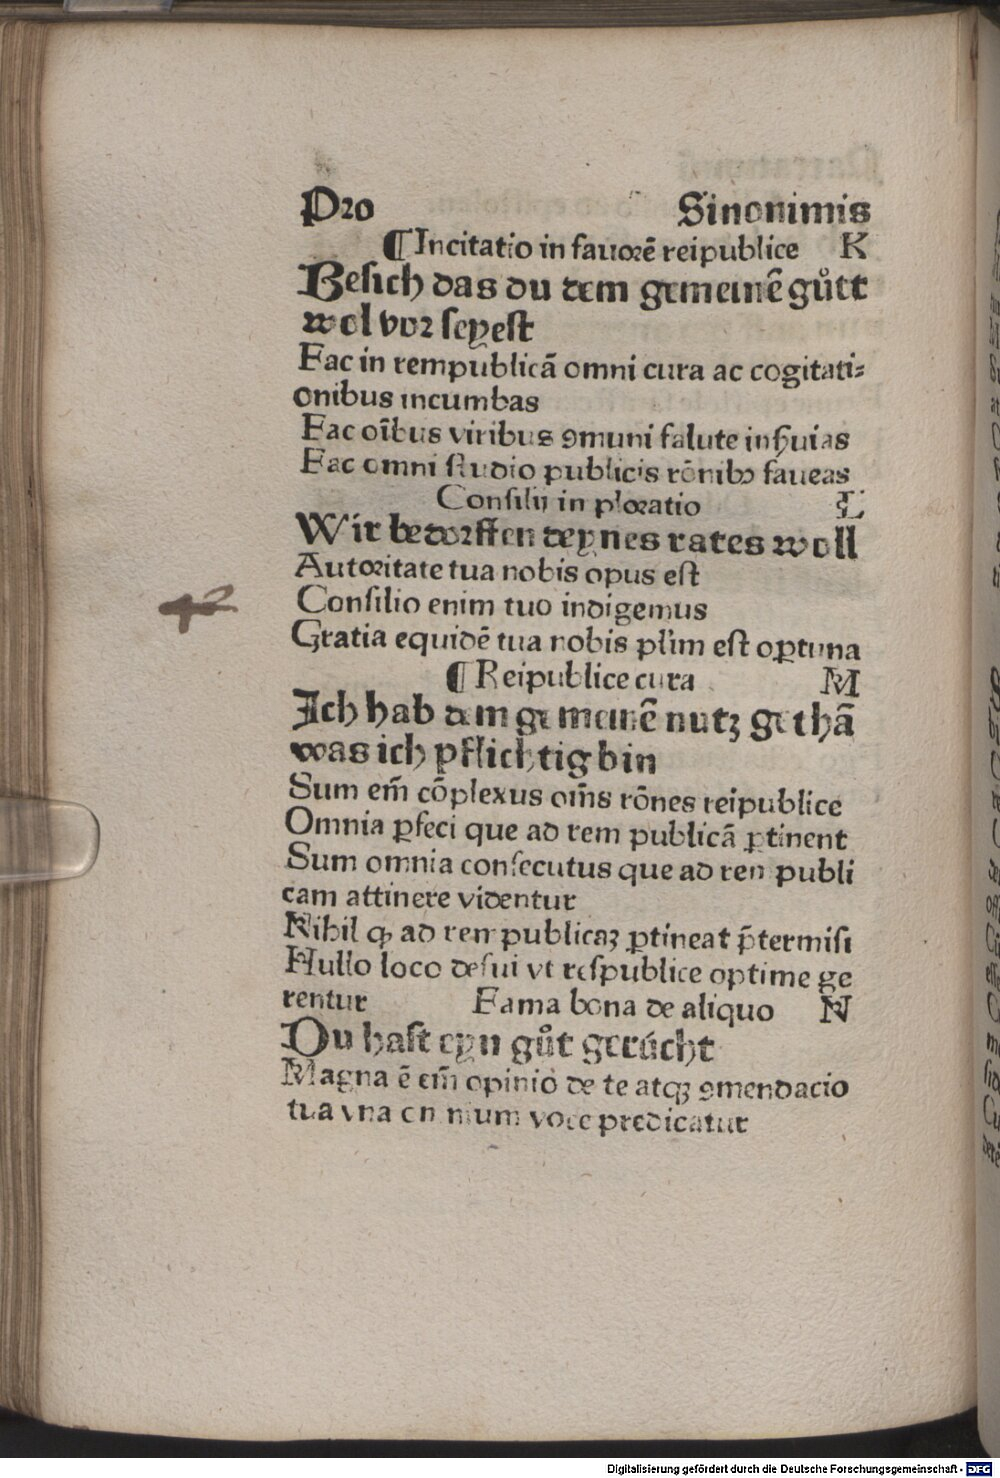 Pro Sinonimis
¶ Incitatio in fauorē reipublice K
Besich das du dem gemeinē gůtt
wol vor seyest
Fac in rempublicā omni cura ac cogitati⸗
onibus incumbas
Fac oībus viribus ꝯmuni salute inẜuias
Fac omni studio publicis rōnibꝫ faueas
Consilij in ploratio L
Wir bedorffen deynes rates woll
Autoritate tua nobis opus est
Consilio enim tuo indigemus
42
Gratia equidē tua nobis plim est oꝑtuna
¶ Reipublice cura M
Ich hab dem gemeinē nutz gethā
was ich pflichtig bin
Sum em̄ cōplexus oīns rōnes reipublice
Omnia ꝑfeci que ad rem publicā ꝑtinent
Sum omnia consecutus que ad rem publi
cam attinere videntur
Nihil qꝫ ad rem publicaꝫ ꝑtineat p̄termisi
Nullo loco defui vt respublice optime ge
rentur Fama bona de aliquo N
Du hast eyn gůt gerúcht
Magna ē em̄ opinio de te atqꝫ ꝯmendacio
tua vna omnium voce predicatur
Digitalisierung gefördert durch die Deutsche Forschungsgemeinschaft - DFG